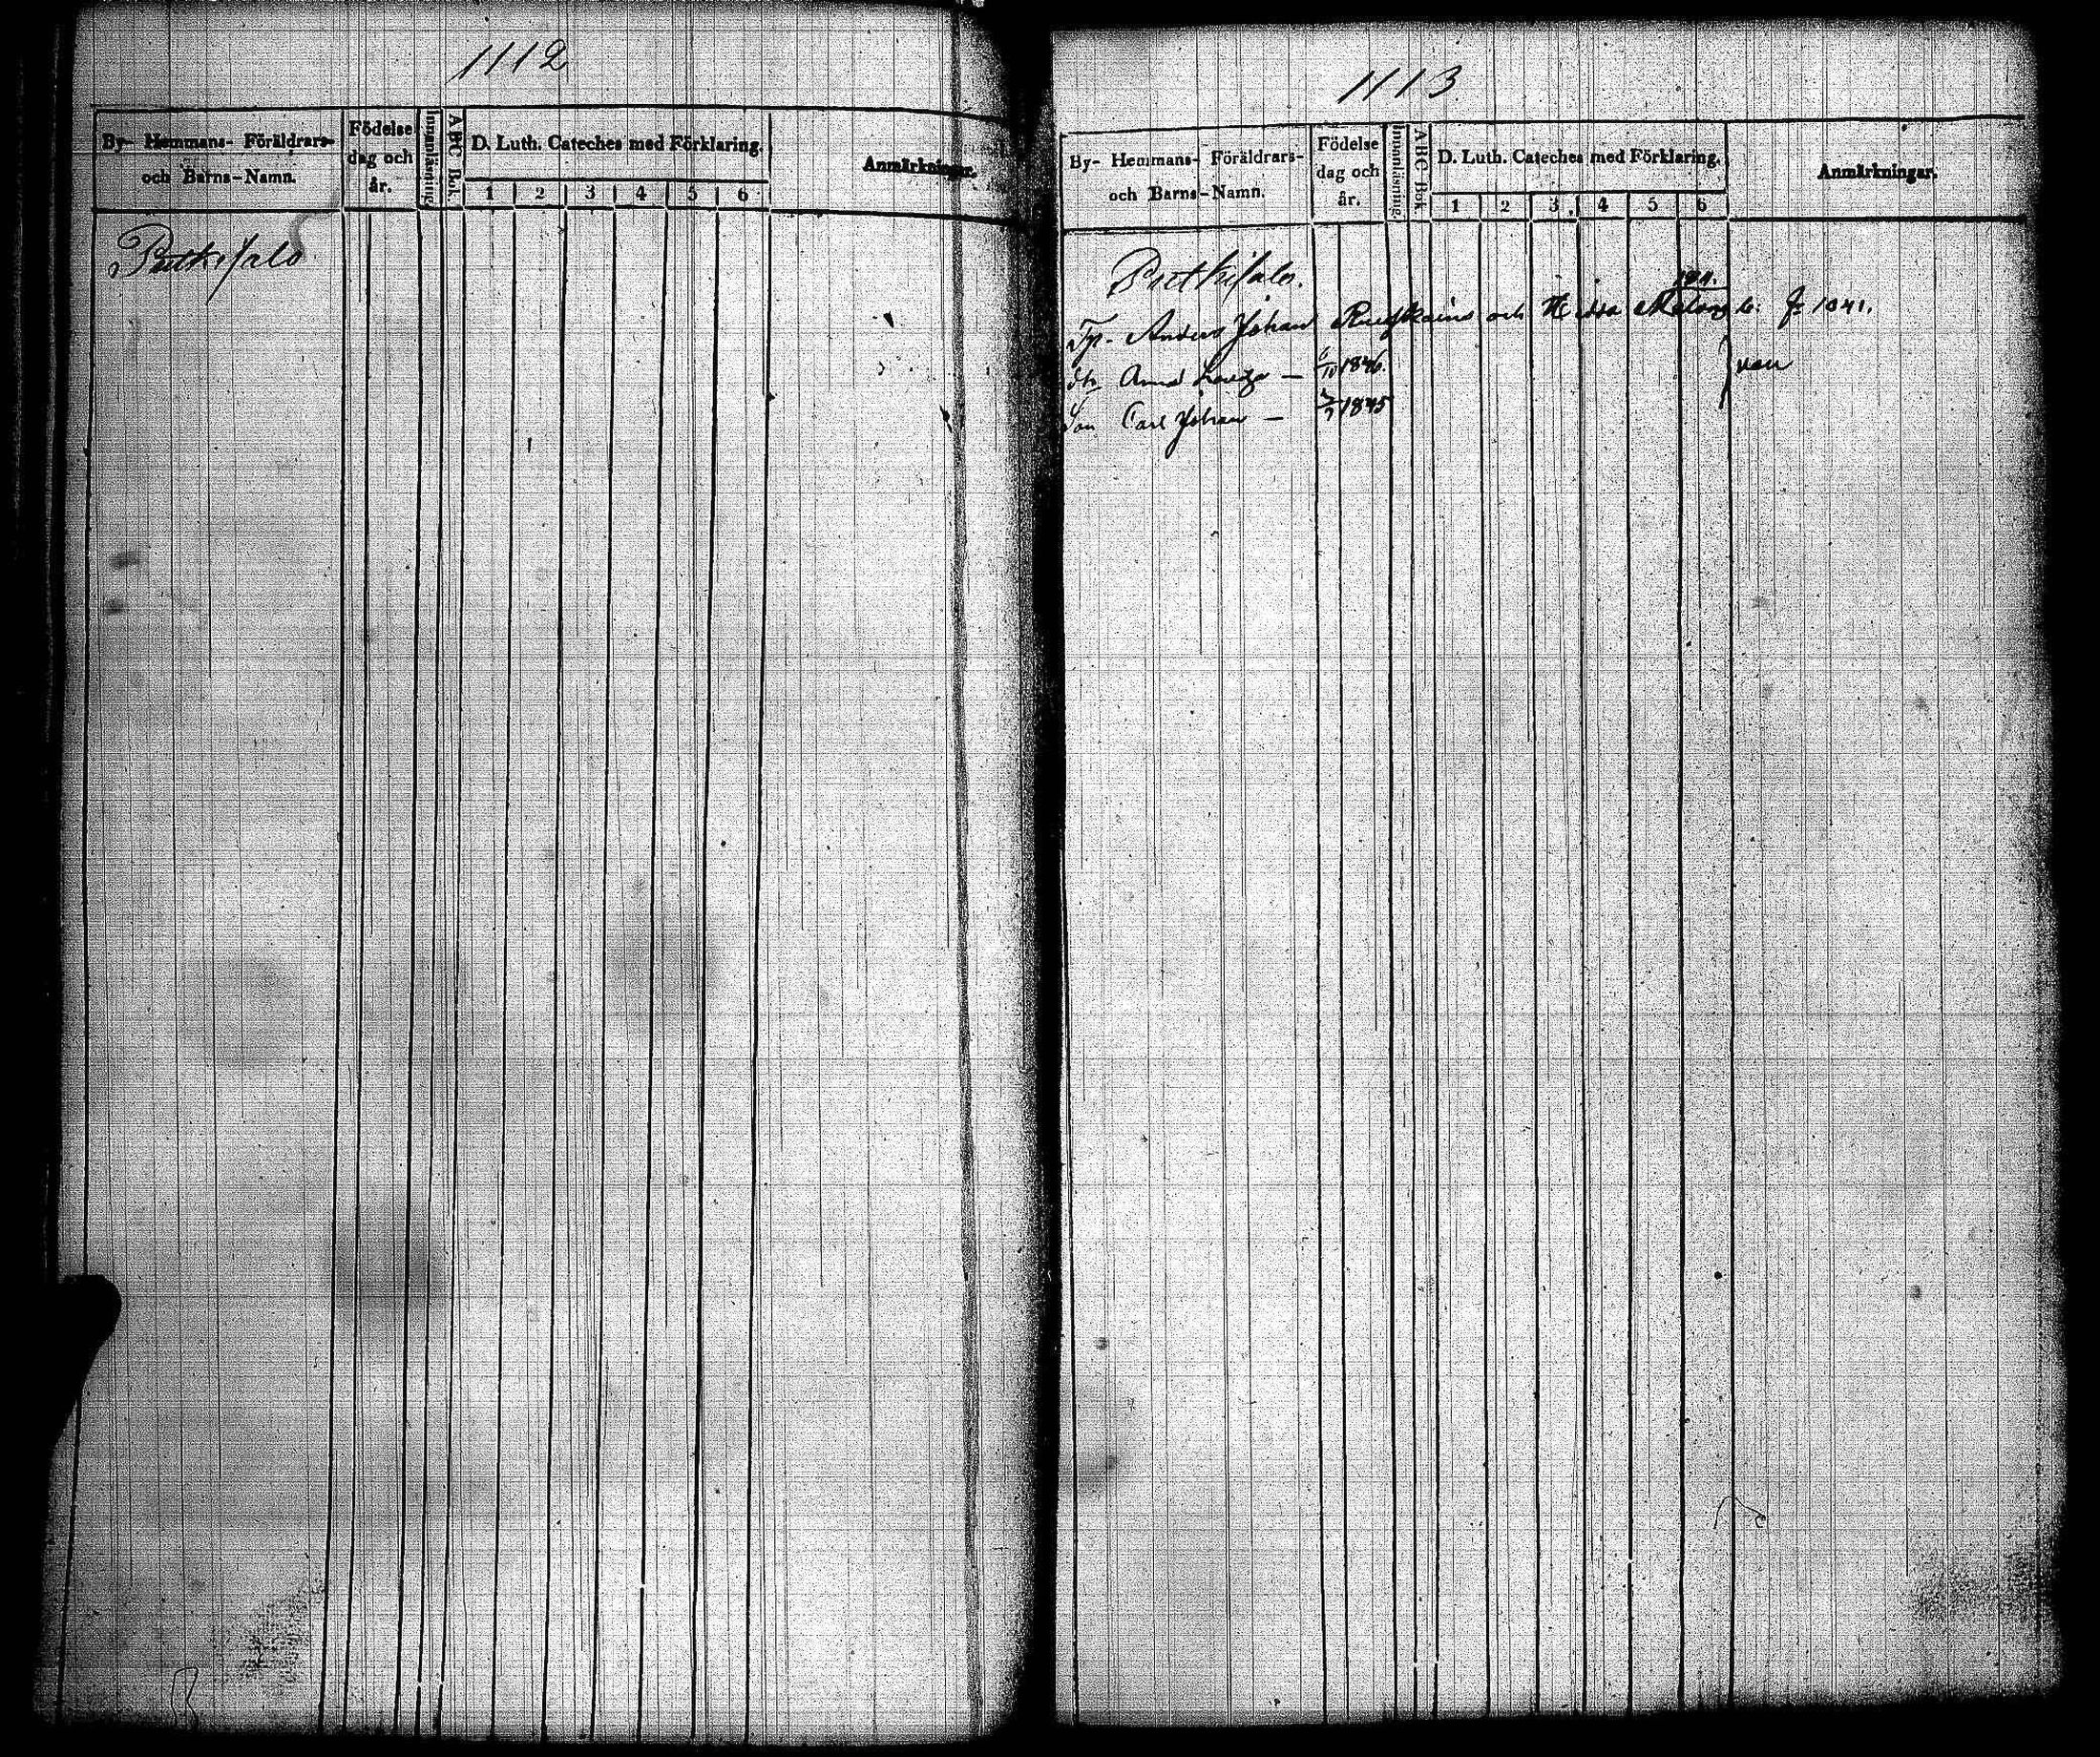 1112
By- Hemmans- Föräldrars-
och Barns-Namn.
Födelse
dag och
år.
Innanläsning.
ABC Bok.
D. Luth. Cateches med Förklaring.
1 2 3 4 5 6
Anmärkningar.
Putkisalo
1113
By- Hemmans- Föräldrars-
och Barns-Namn.
Födelse
dag och
år.
Innanläsning.
ABC Bok.
D. Luth. Cateches med Förklaring.
1 2 3 4 5 6
Anmärkningar.
Putkisalo.
Anders Johan och 1041.
Anna Lovisa — 1846.
Son Carl Johan — 1845